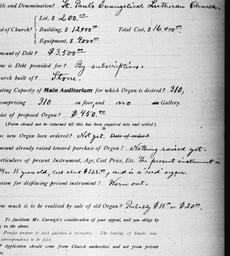 tle and Denomination? St. Paul's Evangelical Lutheran Church.
Lot, $ 200.00
t of Church? Building, $ 12000.00 Total Cost, $ 16,000.00
Equipment, $
mount of Debt? $ 3,500.00
w is Debt provided for? By subscriptions.
hurch built of? Stone.
ting Capacity of Main Auditorium for which Organ is desired? 310,
omprising 310 on floor, and no in Gallery.
ice of proposed Organ? $ 450.00
(Form should not be returned till this has been inquired into and settled)
s new Organ been ordered? Not yet. Date of order?
mount already raised toward purchase of Organ? Nothing raised yet.
articulars of present Instrument, Age, Cost Price, Etc. The present instrument is
15 years old, cost about $125.00, and is a reed organ.
eason for displacing present instrument? Worn out.
ow much is to be realized by sale of old Organ? Probably $15 or $20.00.
To facilitate Mr. Carnegie's consideration of your appeal, will you oblige by
g in the above.
Precise answer to each question is necessary. The leaving of blanks may
correspondence to be filed.
Application should come from Church authorities and not from private